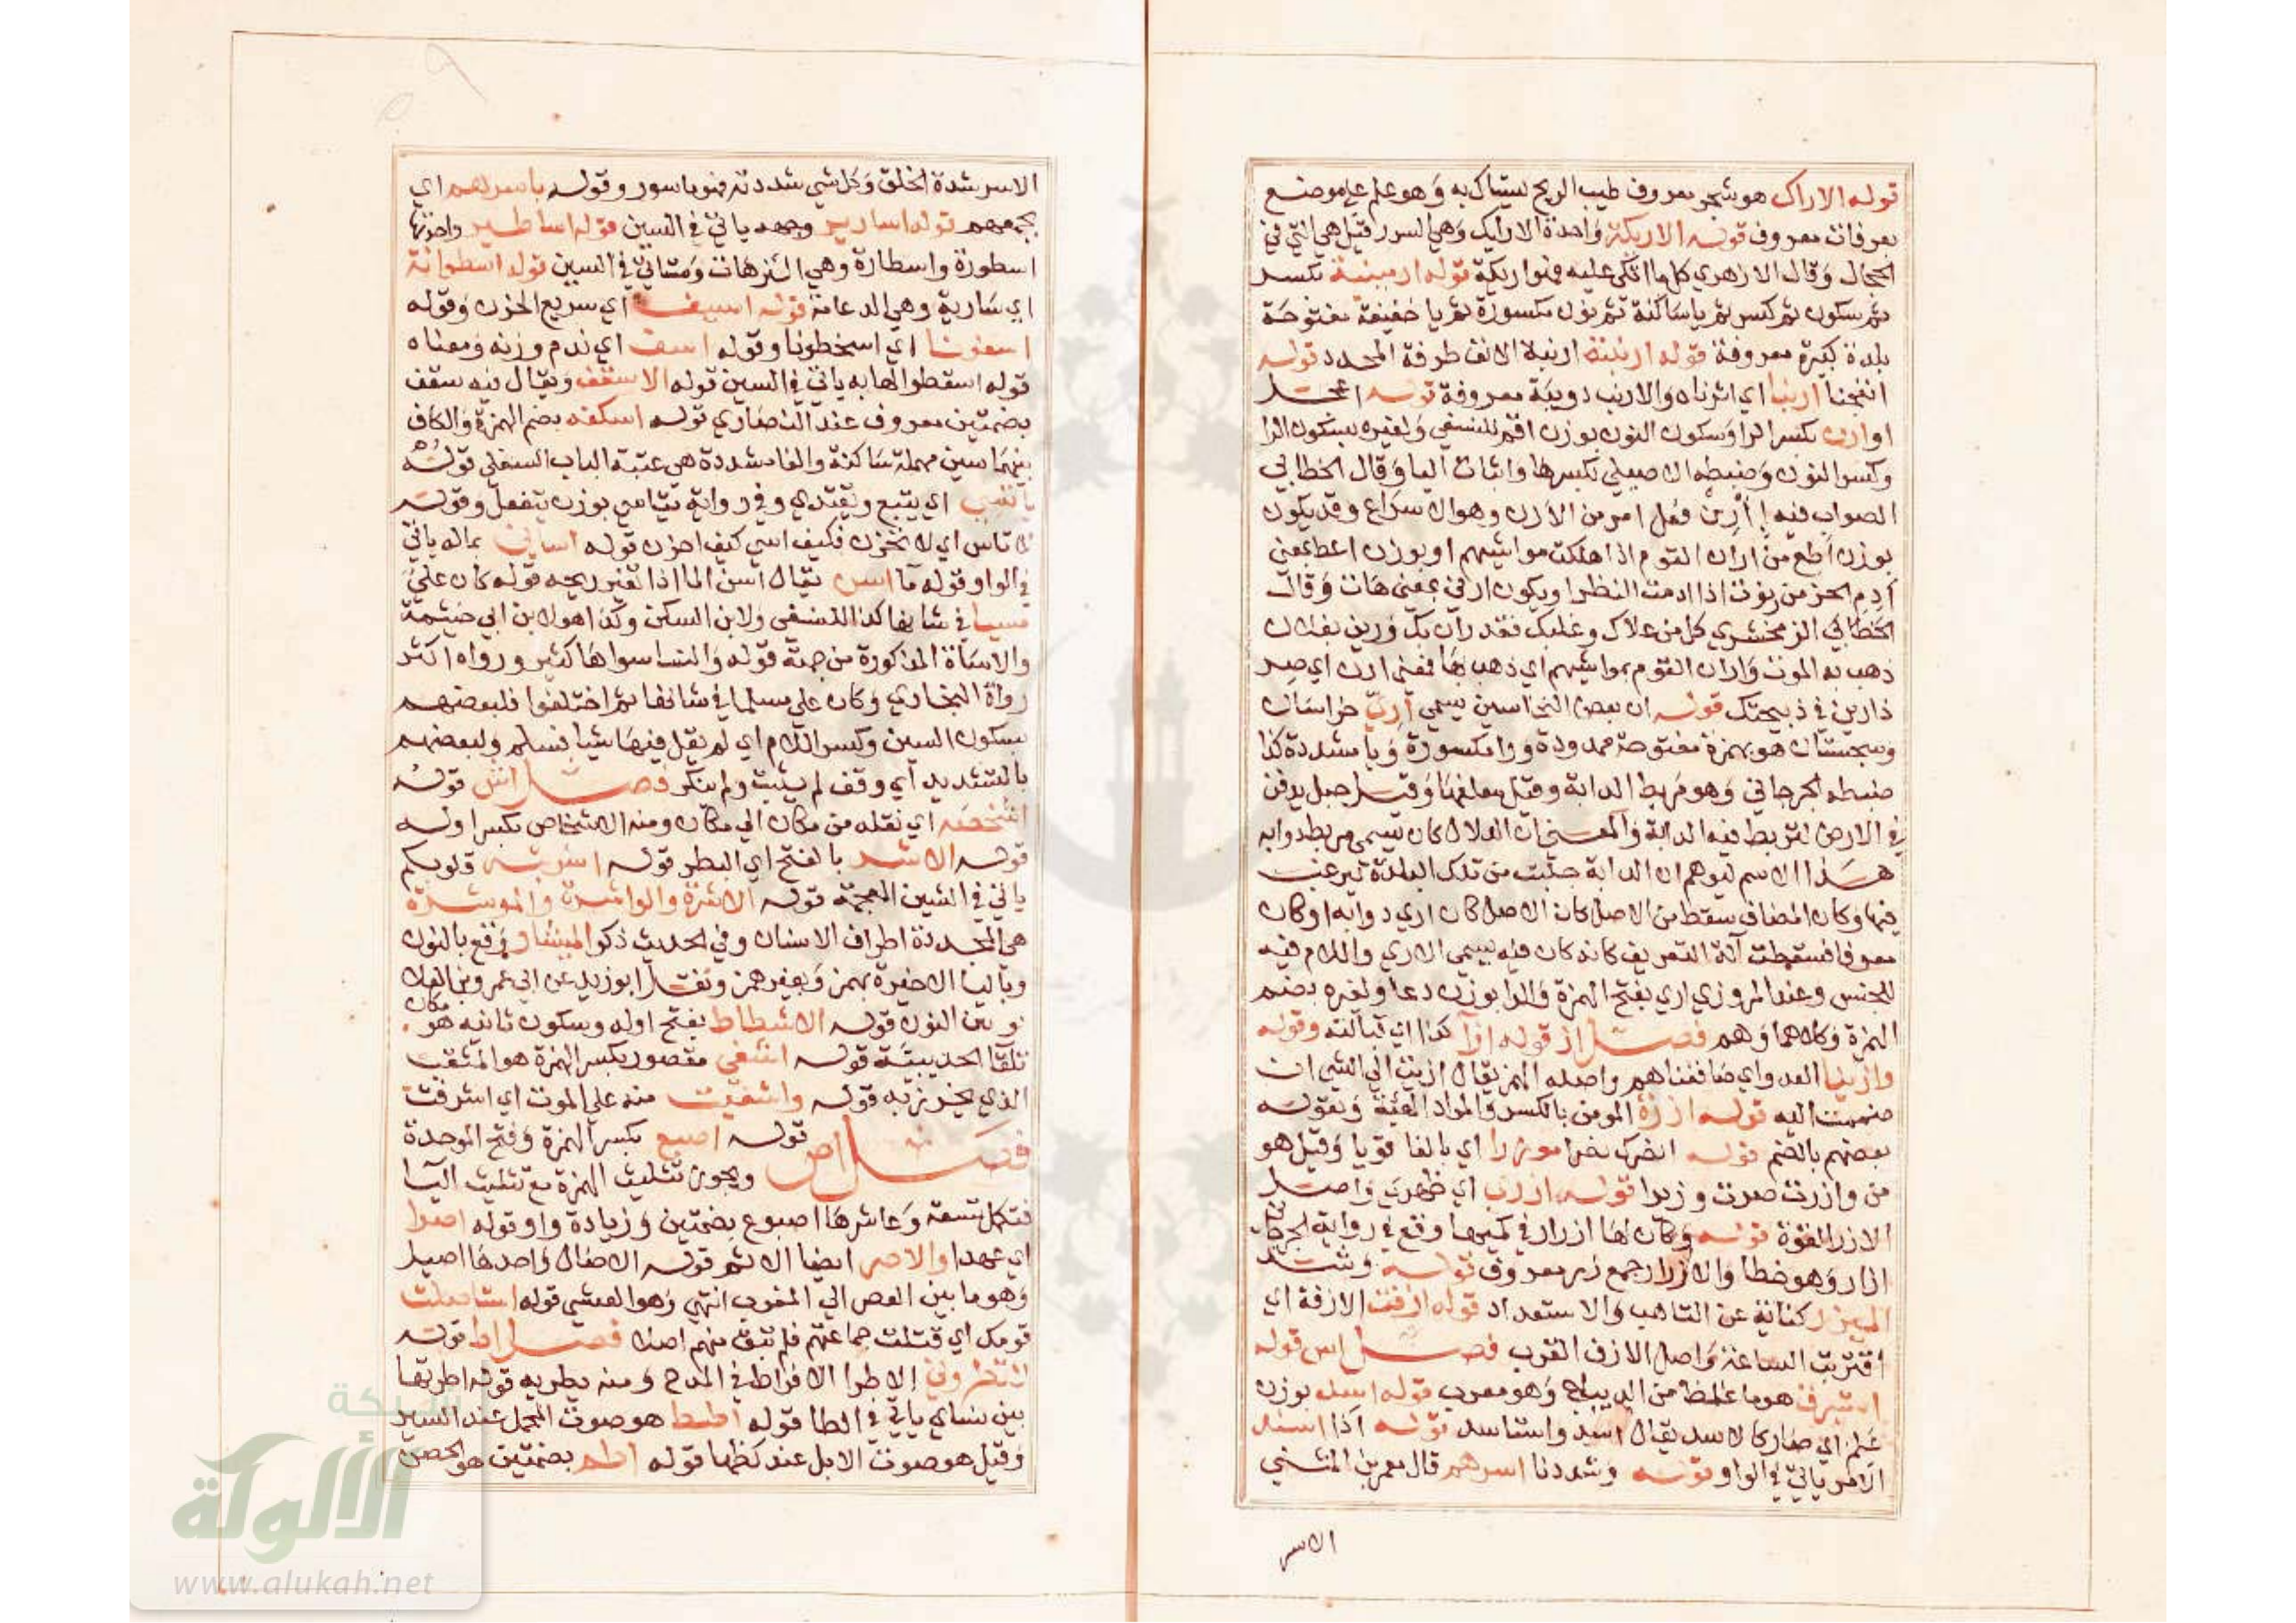 قوله الاراك هو شجر معروف طيب الريح يستاك به وهو علم على موضع
بعرفات معروف قوله الاريكة واحدة الارايك وهي السرر قيل هي التي في
الحجال وقال الازهري كل ما اتكي عليه فهو اريكة قوله ارمينية بكسر
ثم سكون ثم كسر ثم يا ساكنة ثم نون مكسورة ثم يا خفيفة مفتوحة
بلدة كبيرة معروفة قوله ارنبته ارنبة الانف طرفة المحدد قوله
انفجنا ارنبا اي اثرناه والارنب دويبة معروفة قوله اعجل
او ارن بكسر الرا وسكون النون بوزن اقم للنسفي ولغيره بسكون الرا
وكسر النون وضبطه الاصيلي بكسرها واثبات اليا وقال الخطابي
الصواب فيه اأرن فعل امر من الارن وهو الاسراع وقد يكون
بوزن اطع من اران القوم اذا هلكت مواشيهم او بوزن اعط بمعنى
ادم الحز من رنوت اذا ادمت النظر او يكون ارني بمعنى هات وقال
الخطابي الزمخشري كل من علاك وغلبك فقد ران بك ورين بفلان
ذهب به الموت واران القوم بمواشيهم اي ذهب بها فمعنى ارن اي صر
ذارين في ذبيحتك قوله ان بعض النخاسين يسمي آري خراسان
وسجستان هو بهمزة مفتوحة ممدودة ورا مكسورة ويا مشددة كذا
ضبطه الجرجاني وهو مربط الدابة وقيل معلفها وقيل حبل يدفن
في الارض لتربط فيه الدابة والمعنى ان الدلال كان يسمي مربط دوابه
هذا الاسم ليوهم ان الدابة جلبت من تلك البلدة ليرغب
فيها وكان المضاف سقط من الاصل كان الاصل كان اري دوابه او كان
معرفا فسقطت آلة التعريف كانه كان فيه يسمي الاري واللام فيه
للجنس وعند المروزي اري بفتح الهمزة والرا بوزن دعا ولغيره بضم
الهمزة وكلاهما وهم فصل از قوله ازآ كذا اي قبالته وقوله
وازينا العدو اي صاففناهم واصله الهمز يقال ازيت الى الشي ان
ضممت اليه قوله ازرة المومن بالكسر والمراد الهيئة ويقوله
بعضهم بالضم قوله انصرك نصرا موزرا اي بالغا قويا وقيل هو
من وازرت صرت وزيرا قوله ازري اي ظهري واصل
الازر القوة قوله وكان لها ازرار في كميها وقع في رواية الجرجاني
ازار وهو خطا والازرار جمع زر معروف قوله وشد
الميزر كناية عن التاهب والاستعداد قوله ازفت الازفة اي
اقتربت الساعة واصل الازف القرب فصل اس قوله
استبرق هو ما غلظ من الديباج وهو معرب قوله اسد بوزن
علم اي صار كالاسد يقال اسد واستاسد قوله اذا اسند
الامر ياتي في الواو قوله وشددنا اسرهم قال معمر بن المثنى
الاسر
الاسر شدة الخلق وكل شي شددته فهو ماسور وقوله باسرهم اي
بجمعهم قوله اسارير وجهه ياتي في السين قوله اساطير واحدتها
اسطورة واسطارة وهي الترهات وستاتي في السين قوله اسطوانة
اي سارية وهي الدعامة قوله اسيف اي سريع الحزن وقوله
اسفونا اي اسخطونا وقوله اسف اي ندم وزنه ومعناه
قوله اسقطوا لها به ياتي في السين قوله الاسقف ويقال فيه سقف
بضمتين معروف عند النصاري قوله اسكفه بضم الهمزة والكاف
بينهما سين مهملة ساكنة والفا مشددة هي عتبة الباب السفلي قوله
ياتسي اي يتبع ويقتدي وفي رواية يتاسي بوزن يتفعل وقوله
لا تاس اي لا تحزن فكيف اسي كيف احزن قوله اساني بماله ياتي
في الواو قوله مآ اسن يقال اسن الما اذا تغير ريحه قوله كان علي
مسيا في شانها كذا للنسفي ولابن السكن وكذا هو لابن ابي خيثمة
والاساة المذكورة من جهة قوله والنسا سواها كثير ورواه اكثر
رواة البخاري وكان علي مسلما في شانها ثم اختلفوا فلبعضهم
بسكون السين وكسر اللام اي لم يقل فيها شيا فسلم ولبعضهم
بالتشديد اي وقف لم يثبت ولم ينكر فصل اش قوله
اشخصه اي نقله من مكان الي مكان ومنه الاشخاص بكسر اوله
قوله الاشر بالفتح اي البطر قوله اشربته قلوبكم
ياتي في الشين المعجمة قوله الاشرة والواشرة والموشرة
هي المحددة اطراف الاسنان وفي الحديث ذكر المنشار وقع بالنون
وباليا الاخيرة بهمز وبغير همز ونقل ابو زيد عن ابي عمرو بن العلا
وبين النون قوله الاشطاط بفتح اوله وسكون ثانيه هو مكان
تلقا الحديبية قوله اشفي مقصور بكسر الهمزة هو المثقب
الذي يخرز به قوله واشفيت منه على الموت اي اشرفت
فصل اص قوله اصبع بكسر الهمزة وفتح الموحدة
ويجوز تثليث الهمزة مع تثليث البا
فتكمل تسعة وعاشرها اصبوع بضمتين وزيادة واو قوله اصرا
اي عهدا والاصر ايضا الاثم قوله الاصال واحدها اصيل
وهو ما بين العصر الي المغرب انتهى وهو العشي قوله استاصلت
قومك اي قتلت جماعتهم فلم تبق منهم اصلا فصل اط قوله
لا تطروني الاطرا الافراط في المدح ومنه يطريه قوله اطرتها
بين نساي ياتي في الطا قوله اطيط هو صوت المحمل عند السير
وقيل هو صوت الابل عند كظها قوله اطم بضمتين هو الحصن
شبكة
الألوكة
www.alukah.net